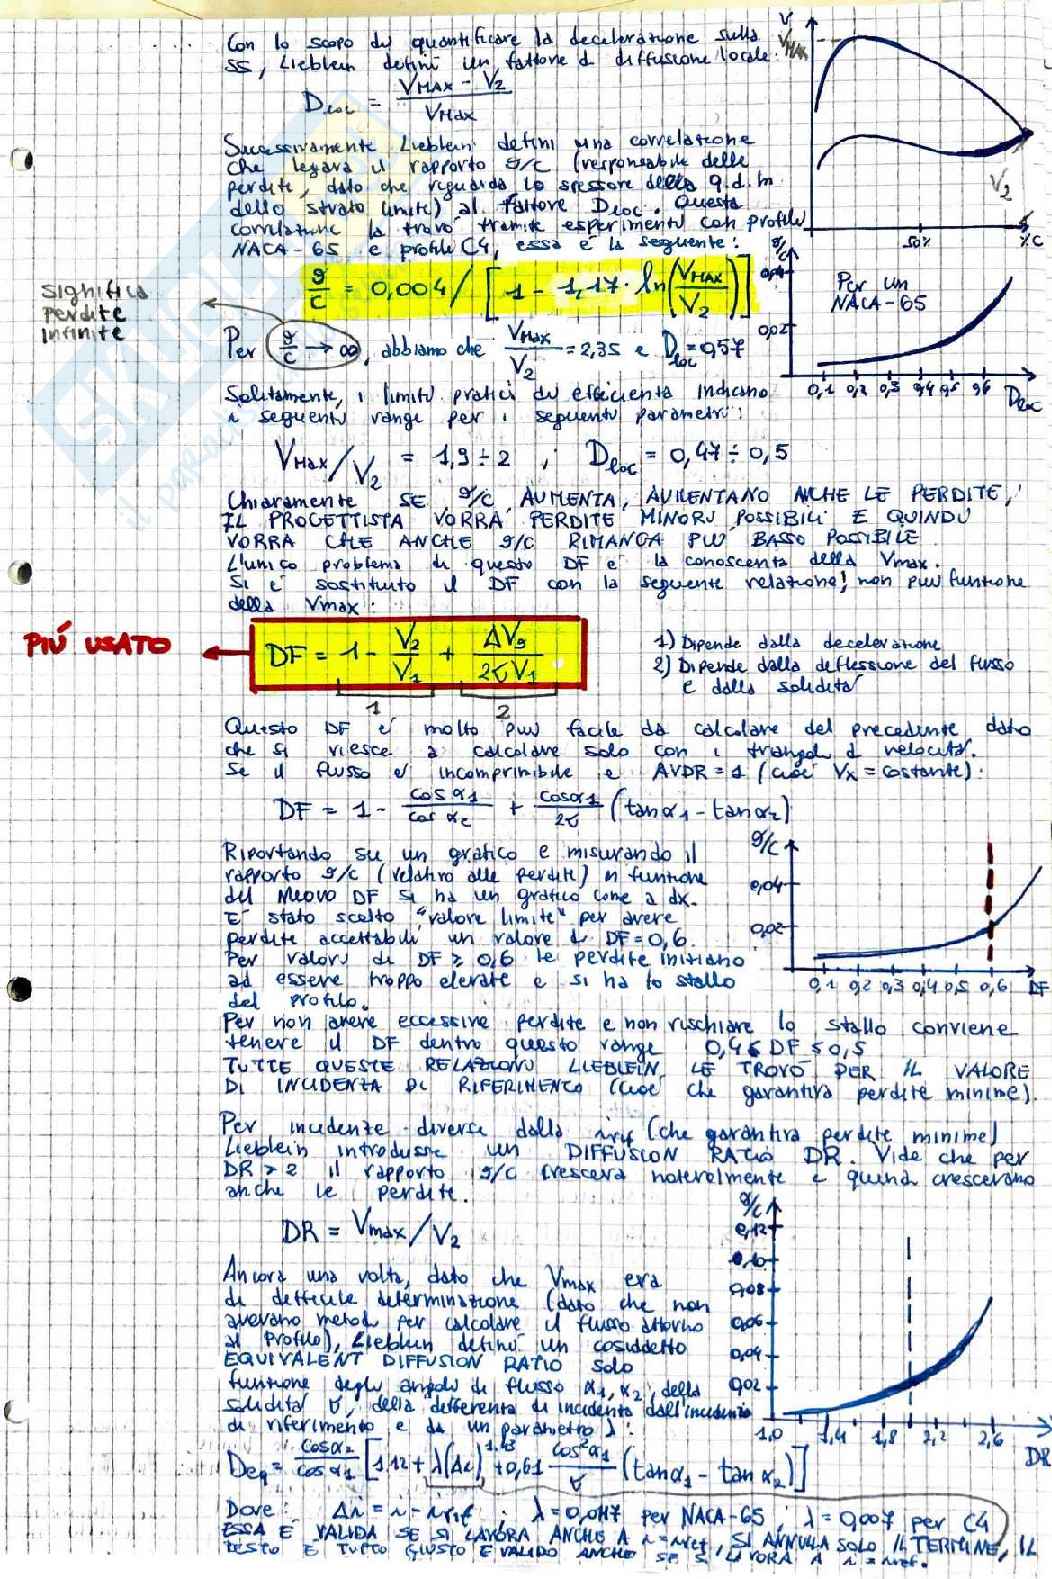 Con lo scopo di quantificare la decelerazione sulla
SS, Lieblein definì un fattore di diffusione locale:
D_loc = (V_MAX - V_2) / V_MAX
V
V_MAX
V_2
50%
%C
Successivamente Lieblein definì una correlazione
che legava il rapporto ϑ/C (responsabile delle
perdite, dato che riguarda lo spessore della q.d.m.
dello strato limite) al fattore D_loc. Questa
correlazione la trovò tramite esperimenti con profilo
NACA-65 e profile C4, essa è la seguente:
ϑ/C = 0,004 / [1 - 1,17 · ln(V_MAX/V_2)]
significa
perdite
infinite
Per ϑ/C → ∞, abbiamo che V_MAX/V_2 = 2,35 e D_loc = 0,57
ϑ/C
0,04
0,02
Per un
NACA-65
0,1 0,2 0,3 0,4 0,5 0,6 D_loc
Solitamente, i limiti pratici di efficienza indicano
i seguenti range per i seguenti parametri:
V_MAX/V_2 = 1,9 ÷ 2 ; D_loc = 0,47 ÷ 0,5
Chiaramente SE ϑ/C AUMENTA, AUMENTANO ANCHE LE PERDITE,
IL PROGETTISTA VORRÀ PERDITE MINORI POSSIBILI E QUINDI
VORRÀ CHE ANCHE ϑ/C RIMANGA PIÙ BASSO POSSIBILE.
L'unico problema di questo DF è la conoscenza della Vmax.
Si è sostituito il DF con la seguente relazione, non più funzione
della Vmax:
PIÚ USATO
DF = 1 - V_2/V_1 + ΔV_ϑ/(2σV_1)
1 2
1) Dipende dalla decelerazione
2) Dipende dalla deflessione del flusso
e dalla solidità
Questo DF è molto più facile da calcolare del precedente dato
che si riesce a calcolare solo con i triangoli di velocità.
Se il flusso è incomprimibile e AVDR = 1 (cioè Vx = costante):
DF = 1 - cos α1/cos α2 + cos α1/2σ (tan α1 - tan α2)
Riportando su un grafico e misurando il
rapporto ϑ/C (relativo alle perdite) in funzione
del nuovo DF si ha un grafico come a dx.
È stato scelto "valore limite" per avere
perdite accettabili un valore di DF = 0,6.
Per valori di DF ≥ 0,6 le perdite iniziano
ad essere troppo elevate e si ha lo stallo
del profilo.
ϑ/C
0,04
0,02
0,1 0,2 0,3 0,4 0,5 0,6 DF
Per non avere eccessive perdite e non rischiare lo stallo conviene
tenere il DF dentro questo range 0,4 ≤ DF ≤ 0,5
TUTTE QUESTE RELAZIONI LIEBLEIN LE TROVÒ PER IL VALORE
DI INCIDENZA DI RIFERIMENTO (cioè che garantiva perdite minime).
Per incidenze diverse dalla i_ref (che garantiva perdite minime)
Lieblein introdusse un DIFFUSION RATIO DR. Vide che per
DR > 2 il rapporto ϑ/C cresceva notevolmente e quindi crescevano
anche le perdite.
DR = Vmax/V_2
Ancora una volta, dato che Vmax era
di difficile determinazione (dato che non
avevano metodi per calcolare il flusso attorno
al profilo), Lieblein definì un cosiddetto
EQUIVALENT DIFFUSION RATIO solo
funzione degli angoli di flusso α1, α2, della
solidità σ, della differenza di incidenza dall'incidenza
di riferimento e da un parametro λ:
ϑ/C
0,12
0,10
0,08
0,06
0,04
0,02
1,0 1,4 1,8 2,2 2,6
DR
Deq = cos α2/cos α1 [1,12 + λ(Δi)^1,43 + 0,61 cos²α1/σ (tan α1 - tan α2)]
Dove: Δi = i - i_ref ; λ = 0,0117 per NACA-65 ; λ = 0,007 per C4
ESSA È VALIDA SE SI LAVORA ANCHE A i = i_ref, SI ANNULLA SOLO IL TERMINE, IL
RESTO È TUTTO GIUSTO E VALIDO ANCHE SE SI LAVORA A i = i_ref.